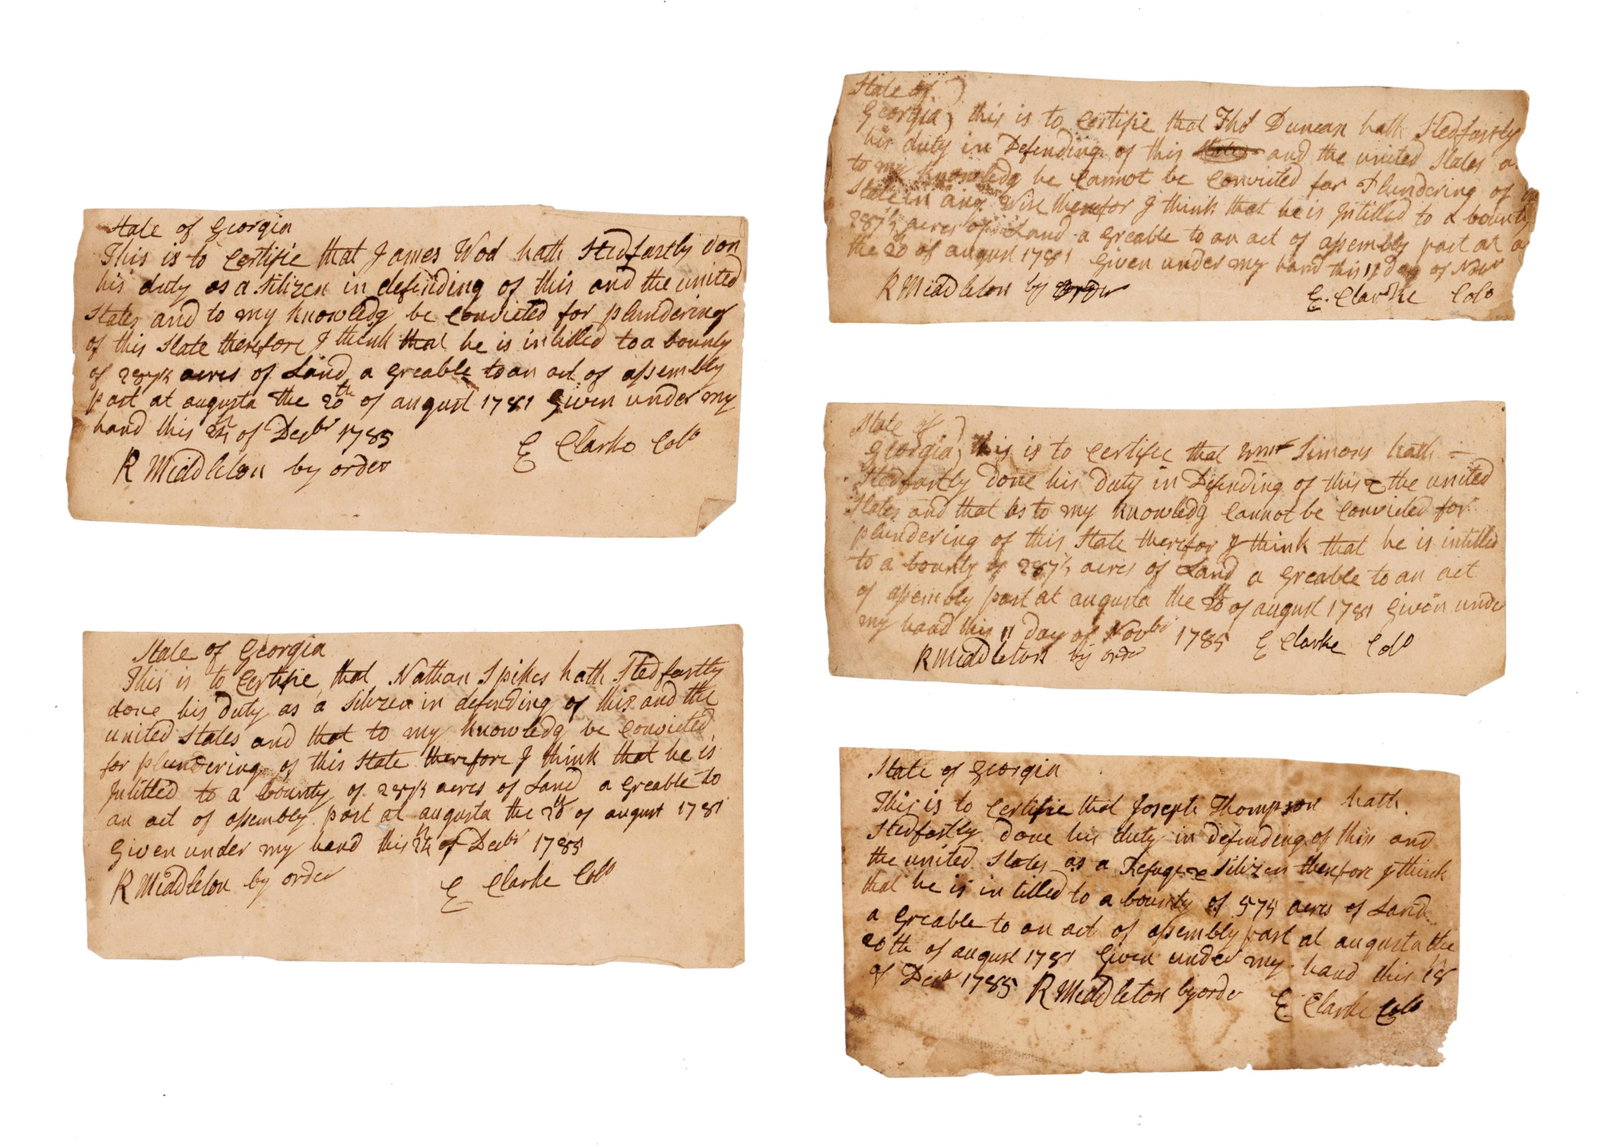 State of Georgia
This is to Certifie that James Wod hath Stedfastly don
his duty as a Sitizen in defending of this and the united
States and to my Knowledg be Convicted for plundering
of this State therefore I think that he is intitled to a bounty
of 287½ acres of Land a Greable to an act of assembly
past at augusta the 20th of august 1781 Given under my
hand this of Decbr 1785
R Middleton by order E Clarke Colo
State of Georgia
This is to Certifie that Nathan Spikes hath Stedfastly
done his Duty as a Sitizen in defending of this and the
united States and that to my Knowledg be Convicted
for plundering of this State therefore I think that he is
Intitled to a bounty of 287½ acres of Land a Greable to
an act of assembly past at augusta the 20th of august 1781
Given under my hand this of Decbr 1785
R Middleton by order E Clarke Colo
State of
Georgia this is to Certifie that Thos Duncan hath Stedfastly
his duty in Defending of this State and the united States
to my Knowledg he Cannot be Convicted for Plundering of
State in any Wise therefor I think that he is Intitled to a bounty
287½ acres of Land a Greable to an act of assembly past at
the 20 of august 1781 Given under my hand this 11 Day of Novr
R Middleton by order E. Clarke Colo
State of
Georgia this is to Certifie that Wm Simons hath
Stedfastly done his Duty in Defending of this & the united
States and that as to my Knowledg Cannot be Convicted for
plundering of this State therefor I think that he is intitled
to a bounty of 287½ acres of Land a Greable to an act
of assembly past at augusta the 20 of august 1781 Given under
my hand this 11 day of Novbr 1785 E Clarke Colo
R Middleton by order
State of Georgia
This is to Certifie that Joseph Thompson hath
Stedfastly done his duty in defending of this and
the united States as a Refugee Sitizen therefore I think
that he is in titled to a bounty of 575 acres of Land
a Greable to an act of assembly past at augusta the
20th of august 1781 Given under my hand this 18
of Decbr 1785 R Middleton by order E Clarke Colo